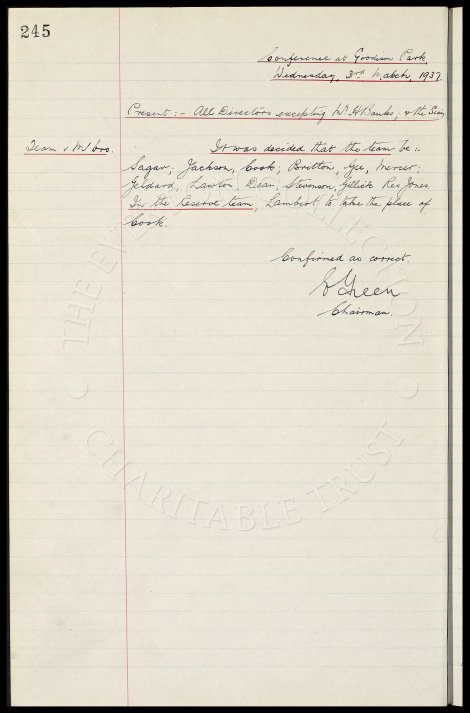 245
Conference at Goodison Park,
Wednesday, 3rd March, 1937.
Present :- All Directors excepting Mr H Banks; & the Secy.
Team v M'bro.
It was decided that the team be :-
Sagar; Jackson, Cook; Britton, Gee, Mercer;
Geldard, Lawton, Dean, Stevenson, Gillick Res Jones.
In the Reserve team, Lambert to take the place of
Cook.
Confirmed as correct.
E Green
Chairman.
THE EVERTON COLLECTION
CHARITABLE TRUST